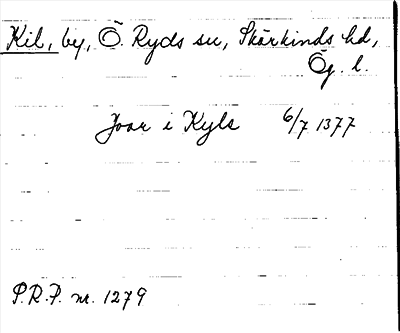 Kil, by, Ö. Ryds sn, Skärkinds hd,
Ög. l.
Joar i Kyls 6/7 1377
P.R.P. nr. 1279